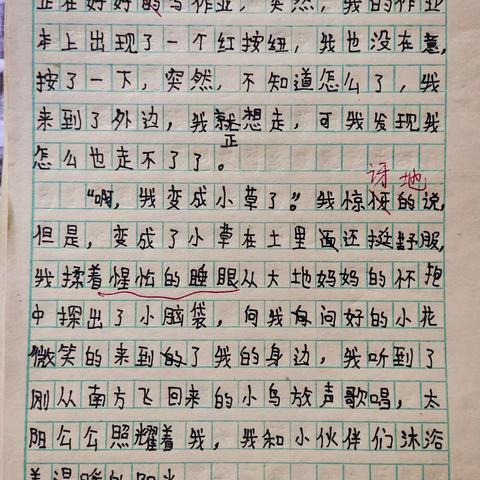 正在好好的写作业，突然，我的作业
本上出现了一个红按纽，我也没在意，
按了一下，突然，不知道怎么了，我
来到了外边，我就想走，可我发现我
正
怎么也走不了了。
讶地
“啊，我变成小草了。”我惊怅的说，
但是，变成了小草在土里面还挺舒服，
我揉着惺忪的睡眼从大地妈妈的怀抱
中探出了小脑袋，向我问好的小花
微笑的来到的了我的身边，我听到了
刚从南方飞回来的小鸟放声歌唱，太
阳公公照耀着我，我和小伙伴们沐浴
着温暖的阳光